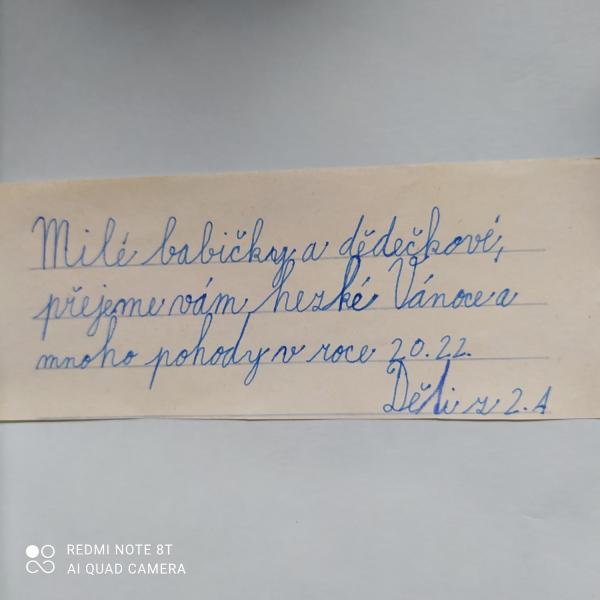 Milé babičky a dědečkové,
přejeme vám hezké Vánoce a
mnoho pohody v roce 20.22.
Děti z 2.A
REDMI NOTE 8T
AI QUAD CAMERA